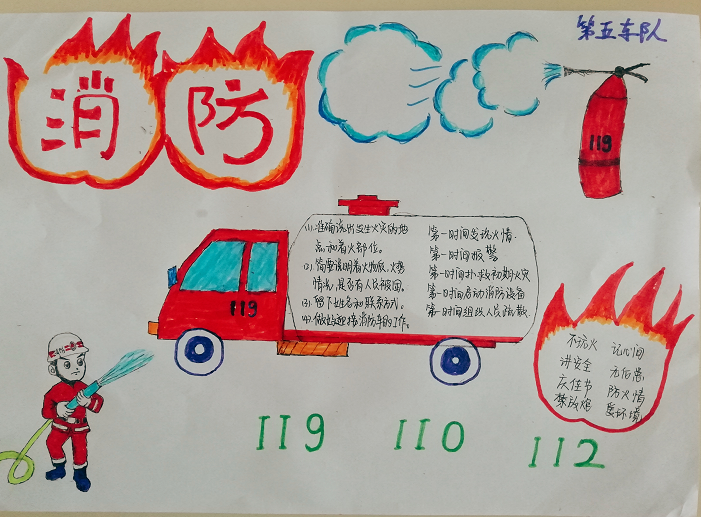 第五车队
消 防
119
(1).准确说出发生火灾的地
点和着火部位。
(2).简要说明着火物质、火势
情况,是否有人员被困。
(3).留下姓名和联系方式。
(4).做好迎接消防车的工作。
第一时间发现火情
第一时间报警
第一时间扑救初期火灾
第一时间启动消防设备
第一时间组织人员疏散
119
不玩火 记心间
讲安全 无后患
庆佳节 防火情
禁放炮 爱环境
119 110 112